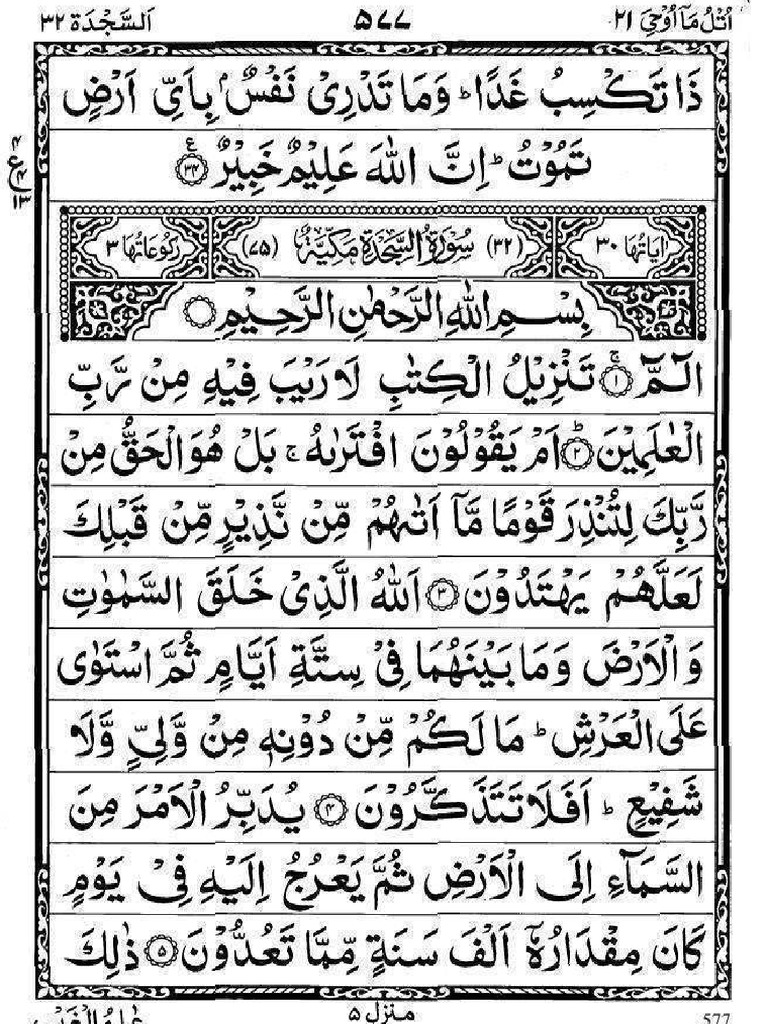 اُتْلُ مَاۤ اُوْحِیَ ۲۱ ۵۷۷ اَلسَّجْدَة ۳۲
ذَا تَكْسِبُ غَدًا ؕ وَمَا تَدْرِیْ نَفْسٌۢ بِاَیِّ اَرْضٍ
تَمُوْتُ ؕ اِنَّ اللّٰهَ عَلِیْمٌ خَبِیْرٌ ﴿۳۴﴾ ع
ع ۴ ۴ ۱۳
اٰیَاتُهَا ۳۰ (۳۲) سُوْرَةُ السَّجْدَةِ مَكِّیَّةٌ (۷۵) رُكُوْعَاتُهَا ۳
بِسْمِ اللّٰهِ الرَّحْمٰنِ الرَّحِیْمِ
الٓمّٓ ﴿۱﴾ ۚ تَنْزِیْلُ الْكِتٰبِ لَا رَیْبَ فِیْهِ مِنْ رَّبِّ
الْعٰلَمِیْنَ ﴿۲﴾ ؕ اَمْ یَقُوْلُوْنَ افْتَرٰىهُ ۚ بَلْ هُوَ الْحَقُّ مِنْ
رَّبِّكَ لِتُنْذِرَ قَوْمًا مَّاۤ اَتٰىهُمْ مِّنْ نَّذِیْرٍ مِّنْ قَبْلِكَ
لَعَلَّهُمْ یَهْتَدُوْنَ ﴿۳﴾ اَللّٰهُ الَّذِیْ خَلَقَ السَّمٰوٰتِ
وَالْاَرْضَ وَمَا بَیْنَهُمَا فِیْ سِتَّةِ اَیَّامٍ ثُمَّ اسْتَوٰى
عَلَى الْعَرْشِ ؕ مَا لَكُمْ مِّنْ دُوْنِهٖ مِنْ وَّلِیٍّ وَّلَا
شَفِیْعٍ ؕ اَفَلَا تَتَذَكَّرُوْنَ ﴿۴﴾ یُدَبِّرُ الْاَمْرَ مِنَ
السَّمَآءِ اِلَى الْاَرْضِ ثُمَّ یَعْرُجُ اِلَیْهِ فِیْ یَوْمٍ
كَانَ مِقْدَارُهٗۤ اَلْفَ سَنَةٍ مِّمَّا تَعُدُّوْنَ ﴿۵﴾ ذٰلِكَ
577 منزل ۵ عٰلِمُ الْغَیْبِ